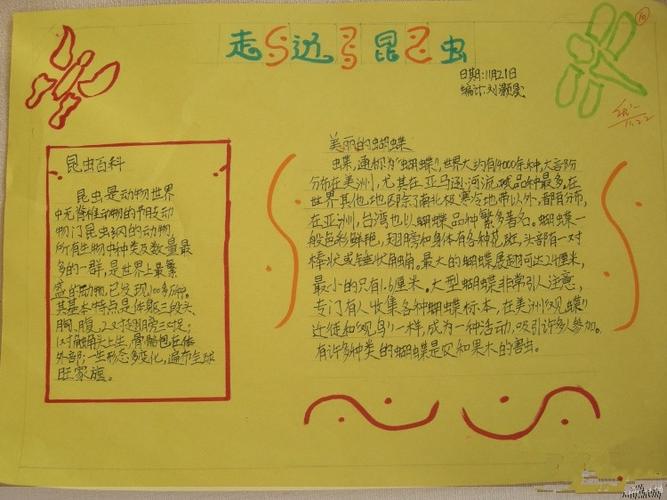 走边昆虫
日期:11月21日
编计:刘灏
11.22
昆虫百科
昆虫是动物世界
中无脊椎动物的节肢动
物门昆虫纲的动物,
所有生物中种类及数量最
多的一群,是世界上最繁
盛的动物,已发现100多万种。
其基本特点是体躯三段头、
胸、腹,2对翅膀三对足;
1对触角头上生,骨骼包在体
外部;一生形态多变化,遍布全球
旺家旗。
美丽的蝴蝶
虫蝶,通称为“蝴蝶”,世界大约有14000余种,大部份
分布在美洲,尤其在亚马逊河流域品种最多,在
世界其他地区除了南北极寒冷地带以外,都有分布,
在亚洲,台湾也以蝴蝶品种繁多著名。蝴蝶一
般色彩鲜艳,翅膀和身体有各种花斑,头部有一对
棒状或锤状角触。最大的蝴蝶展翅可达24厘米,
最小的只有1.6厘米。大型蝴蝶非常引人注意,
专门有人收集各种蝴蝶标本,在美洲“观蝶”
迁徙和“观鸟”一样,成为一种活动,吸引许多人参加。
有许多种类的蝴蝶是农和果木的害虫。